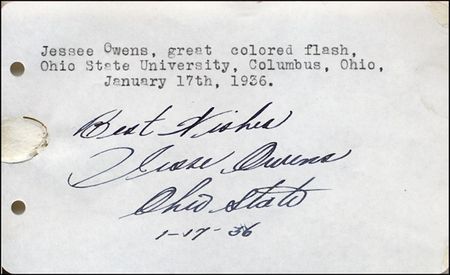 Jessee Owens, great colored flash,
Ohio State University, Columbus, Ohio,
January 17th, 1936.
Best Wishes
Jesse Owens
Ohio State
1-17-36